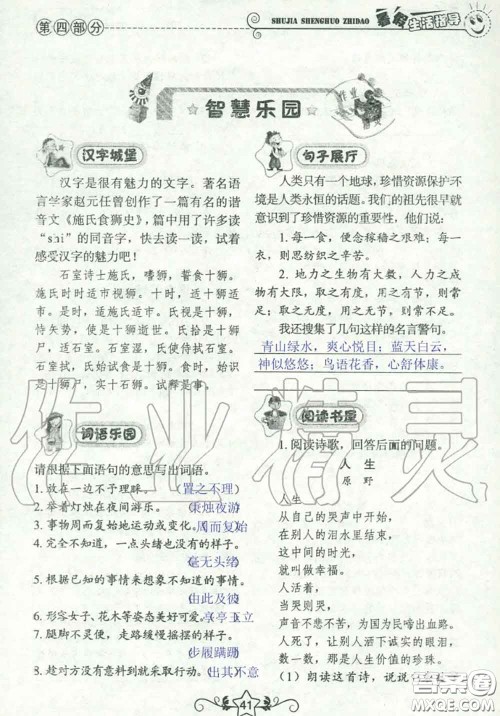 第四部分
SHUJIA SHENGHUO ZHIDAO
暑假生活指导
智慧乐园
汉字城堡
汉字是很有魅力的文字。著名语
言学家赵元任曾创作了一篇有名的谐
音文《施氏食狮史》，篇中用了许多读
“shi”的同音字，快去读一读，试着
感受汉字的魅力吧！
石室诗士施氏，嗜狮，誓食十狮。
施氏时时适市视狮。十时，适十狮适
市。是时，适施氏适市。氏视是十狮，
恃矢势，使是十狮逝世。氏拾是十狮
尸，适石室。石室湿，氏使侍拭石室。
石室拭，氏始试食十狮尸。食时，始识
是十狮尸，实十石狮尸。试释是事。
词语乐园
请根据下面语句的意思写出词语。
1. 放在一边不予理睬。（置之不理）
2. 举着灯烛在夜间游乐。（秉烛夜游）
3. 事物周而复始地运动或变化。（周而复始）
4. 完全不知道，一点头绪也没有的样子。
（毫无头绪）
5. 根据已知的事情来想象不知道的事情。
（由此及彼）
6. 形容女子、花木等姿态美好可爱。（亭亭玉立）
7. 腿脚不灵便，走路缓慢摇摆的样子。
（步履蹒跚）
8. 趁对方没有意料到就采取行动。（出其不意）
句子展厅
人类只有一个地球，珍惜资源保护环
境是人类永恒的话题。我们的祖先很早就
意识到了珍惜资源的重要性，他们说：
1. 每一食，便念稼穑之艰难；每一
衣，则思纺绩之辛苦。
2. 地力之生物有大数，人力之成
物有大限，取之有度，用之有节，则常
足；取之无度，用之无节，则常不足。
我还搜集了几句这样的名言警句。
青山绿水，爽心悦目；蓝天白云，
神似悠悠；鸟语花香，心舒体康。
阅读书屋
1. 阅读诗歌，回答后面的问题。
人 生
原 野
人生——
从自己的哭声中开始，
在别人的泪水里结束，
这中间的时光，
就叫做人生。
人活着，
当哭则哭，
声音不悲不苦，为国为民啼出血路。
人死了，让别人洒下诚实的眼泪，
数一数，那是人生价值的珍珠。
（1）朗读这首诗，说说
41
作业精灵
作业
答案圈
MXQE.COM